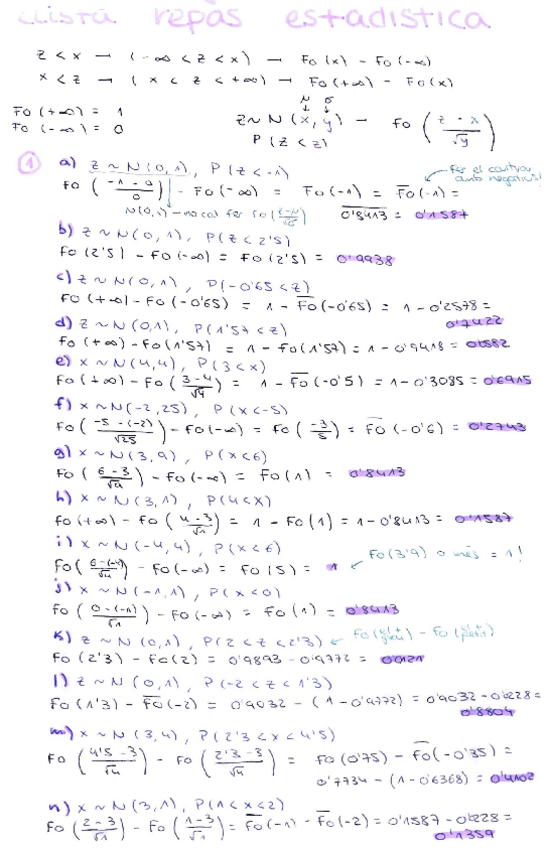 Llista repàs estadística
z < x → (-∞ < z < x) → Fo(x) - Fo(-∞)
x < z → (x < z < +∞) → Fo(+∞) - Fo(x)
Fo(+∞) = 1
Fo(-∞) = 0
z ~ N(x, y) → Fo((z - x)/√y)
P(z < z)
1 a) z ~ N(0,1), P(z < -1)
Fo((-1-0)/0) - Fo(-∞) = Fo(-1) = Fo(-1) =
0'8413 = 0'1587
b) z ~ N(0,1), P(z < 2'5)
Fo(2'5) - Fo(-∞) = Fo(2'5) = 0'9938
c) z ~ N(0,1), P(-0'65 < z)
Fo(+∞) - Fo(-0'65) = 1 - Fo(-0'65) = 1 - 0'2578 =
0'7422
d) z ~ N(0,1), P(1'57 < z)
Fo(+∞) - Fo(1'57) = 1 - Fo(1'57) = 1 - 0'9418 = 0'0582
e) x ~ N(4,4), P(3 < x)
Fo(+∞) - Fo((3-4)/√4) = 1 - Fo(-0'5) = 1 - 0'3085 = 0'6915
f) x ~ N(-2,25), P(x < -5)
Fo((-5-(-2))/√25) - Fo(-∞) = Fo(-3/5) = Fo(-0'6) = 0'2743
g) x ~ N(3,9), P(x < 6)
Fo((6-3)/√9) - Fo(-∞) = Fo(1) = 0'8413
h) x ~ N(3,1), P(4 < x)
Fo(+∞) - Fo((4-3)/√1) = 1 - Fo(1) = 1 - 0'8413 = 0'1587
i) x ~ N(-4,4), P(x < 6)
Fo((6-(-4))/√4) - Fo(-∞) = Fo(5) = 1 Fo(3'9) o més = 1!
j) x ~ N(-1,1), P(x < 0)
Fo((0-(-1))/√1) - Fo(-∞) = Fo(1) = 0'8413
k) z ~ N(0,1), P(2 < z < 2'3)
Fo(2'3) - Fo(2) = 0'9893 - 0'9772 = 0'0121
l) z ~ N(0,1), P(-2 < z < 1'3)
Fo(1'3) - Fo(-2) = 0'9032 - (1 - 0'9772) = 0'9032 - 0'0228 =
0'8804
m) x ~ N(3,4), P(2'3 < x < 4'5)
Fo((4'5-3)/√4) - Fo((2'3-3)/√4) = Fo(0'75) - Fo(-0'35) =
0'7734 - (1 - 0'6368) = 0'4102
n) x ~ N(3,1), P(1 < x < 2)
Fo((2-3)/√1) - Fo((1-3)/√1) = Fo(-1) - Fo(-2) = 0'1587 - 0'0228 =
0'1359